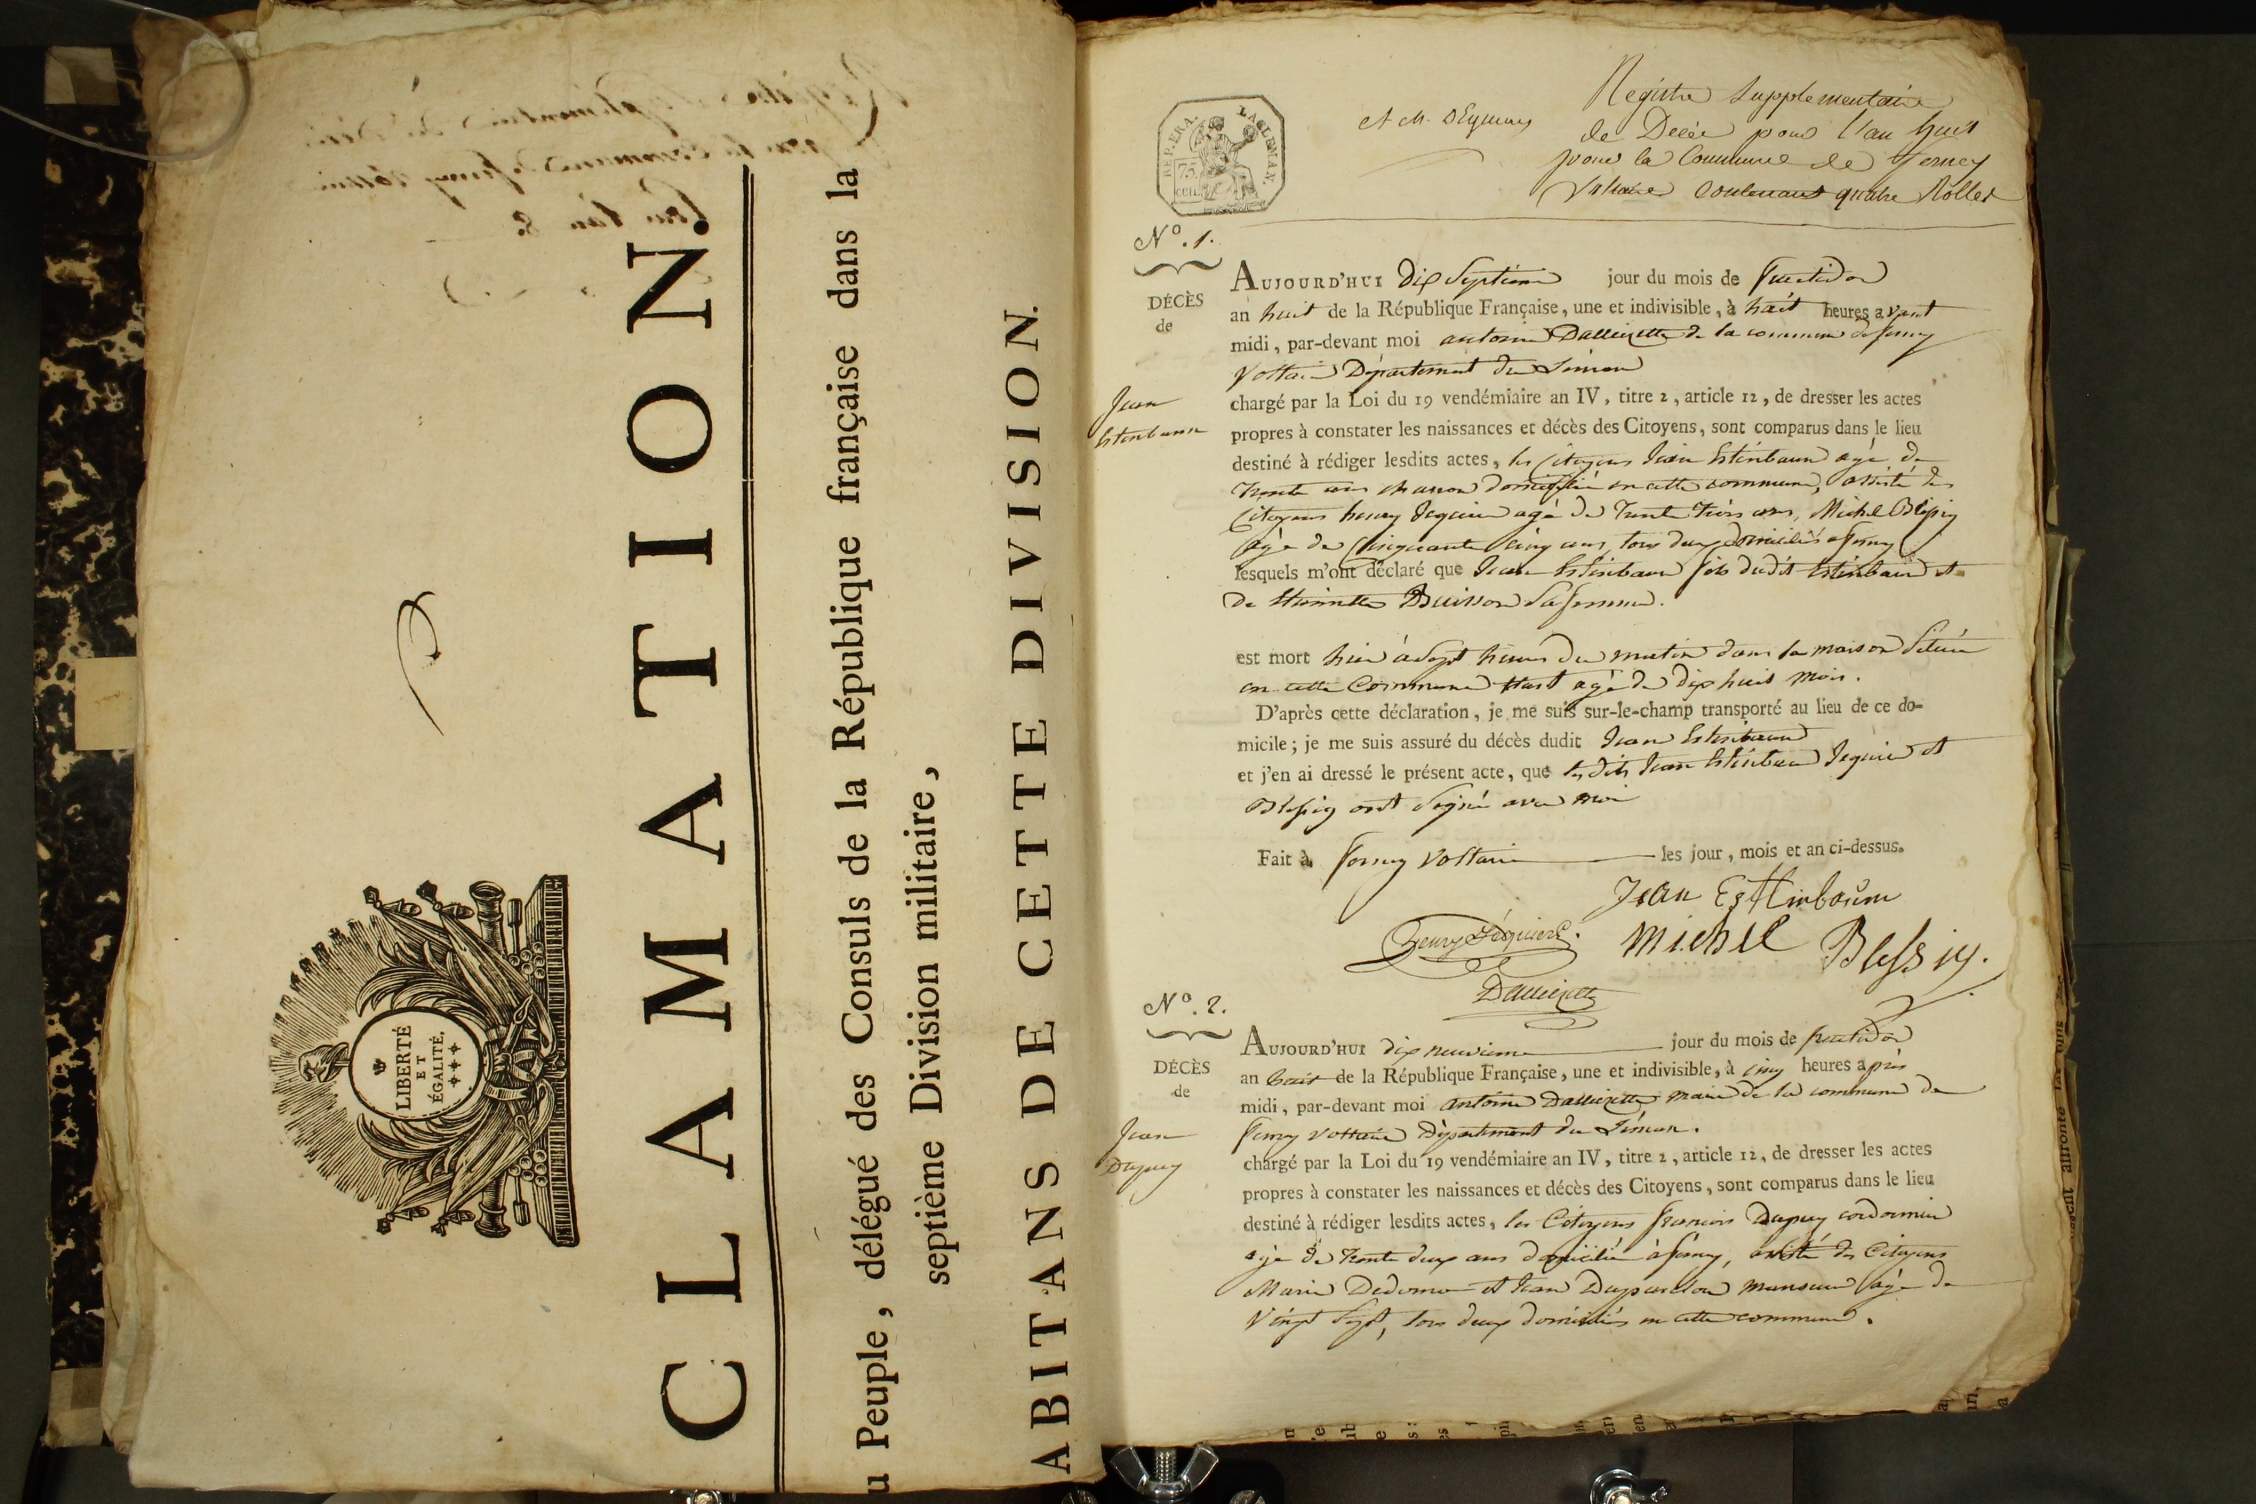 LIBERTÉ
ET
ÉGALITÉ.
CLAMATION.
u Peuple, délégué des Consuls de la République française dans la
septième Division militaire,
ABITANS DE CETTE DIVISION.
REP. ERA. LAGLEMAN.
75.
CEN.
Registre Supplementaire
de Décès pour l'an huit
pour la Commune de ferney
Voltaire Contenant quatre Rolles
N.º 1.
DÉCÈS
de
Jean
Estinbaum
AUJOURD'HUI dix Septieme jour du mois de fructidor
an huit de la République Française, une et indivisible, à huit heures avant
midi, par-devant moi antoine de la commune de ferney
Voltaire Département du Léman
chargé par la Loi du 19 vendémiaire an IV, titre 2, article 12, de dresser les actes
propres à constater les naissances et décès des Citoyens, sont comparus dans le lieu
destiné à rédiger lesdits actes, les Citoyens Jean Estinbaum agé de
trente ans charron domicilié en cette commune, assisté des
Citoyens henry Jequier agé de trente trois ans, Michel Blessig
agé de Cinquante cinq ans, tous deux domiciliés a ferney
lesquels m'ont déclaré que Jean Estinbaum fils dudit Estinbaum et
de Buisson sa femme.
est mort hier à sept heures du matin dans la maison Située
en cette Commune etant agé de dix huit mois.
D'après cette déclaration, je me suis sur-le-champ transporté au lieu de ce do-
micile; je me suis assuré du décès dudit Jean Estinbaum
et j'en ai dressé le présent acte, que les dits Jean Estinbaum Jequier et
Blessig ont signé avec moi
Fait à ferney Voltaire les jour, mois et an ci-dessus.
Jean Esttinbaum
henry Jéquier.
Michel Blessig.
N.º 2.
DÉCÈS
de
Jean
Dupuy
AUJOURD'HUI dix neuvieme jour du mois de fructidor
an huit de la République Française, une et indivisible, à cinq heures après
midi, par-devant moi antoine maire de la commune de
ferney voltaire Département du Léman.
chargé par la Loi du 19 vendémiaire an IV, titre 2, article 12, de dresser les actes
propres à constater les naissances et décès des Citoyens, sont comparus dans le lieu
destiné à rédiger lesdits actes, les Citoyens francois Dupuy cordonnier
agé de trente deux ans domicilié à ferney, assisté des Citoyens
Marie et Jean agé de
Vingt sept, tous deux domiciliés en cette commune.